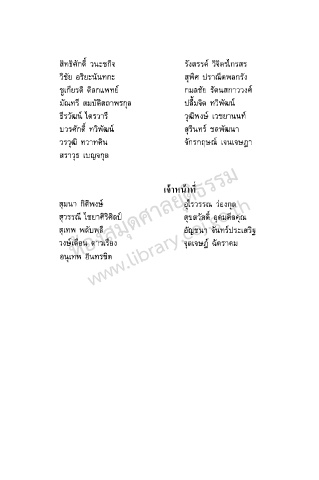 สิทธิศักดิ์ วนะชกิจ
วิชัย อริยะนันทกะ
ชูเกียรติ ดิลกแพทย์
มัณทรี สมบัติสถาพรกุล
ธีรวัฒน์ ไตรวารี
บวรศักดิ์ ทวิพัฒน์
วรวุฒิ ทวาทศิน
สราวุธ เบญจกุล
รังสรรค์ วิจิตรไกรสร
สุพิศ ปราณีตพลกรัง
กมลชัย รัตนสกาววงศ์
ปลื้มจิต ทวิพัฒน์
วุฒิพงษ์ เวชยานนท์
สุรินทร์ ชลพัฒนา
จักรกฤษณ์ เจนเจษฎา
เจ้าหน้าที่
สุมนา กิติพงษ์
สุวรรณี ไชยาศิริศิลป์
สุเทพ พลับพลึ
วงษ์เดือน ดาวเรือง
อนุเทพ อินทรชิต
อุไรวรรณ ว่องกุล
สุขสวัสดิ์
อัญชนา จันทร์ประเสริฐ
จุลเจษฎ์ ฉัตราคม
ห้องสมุดศาลยุติธรรม
www.library.